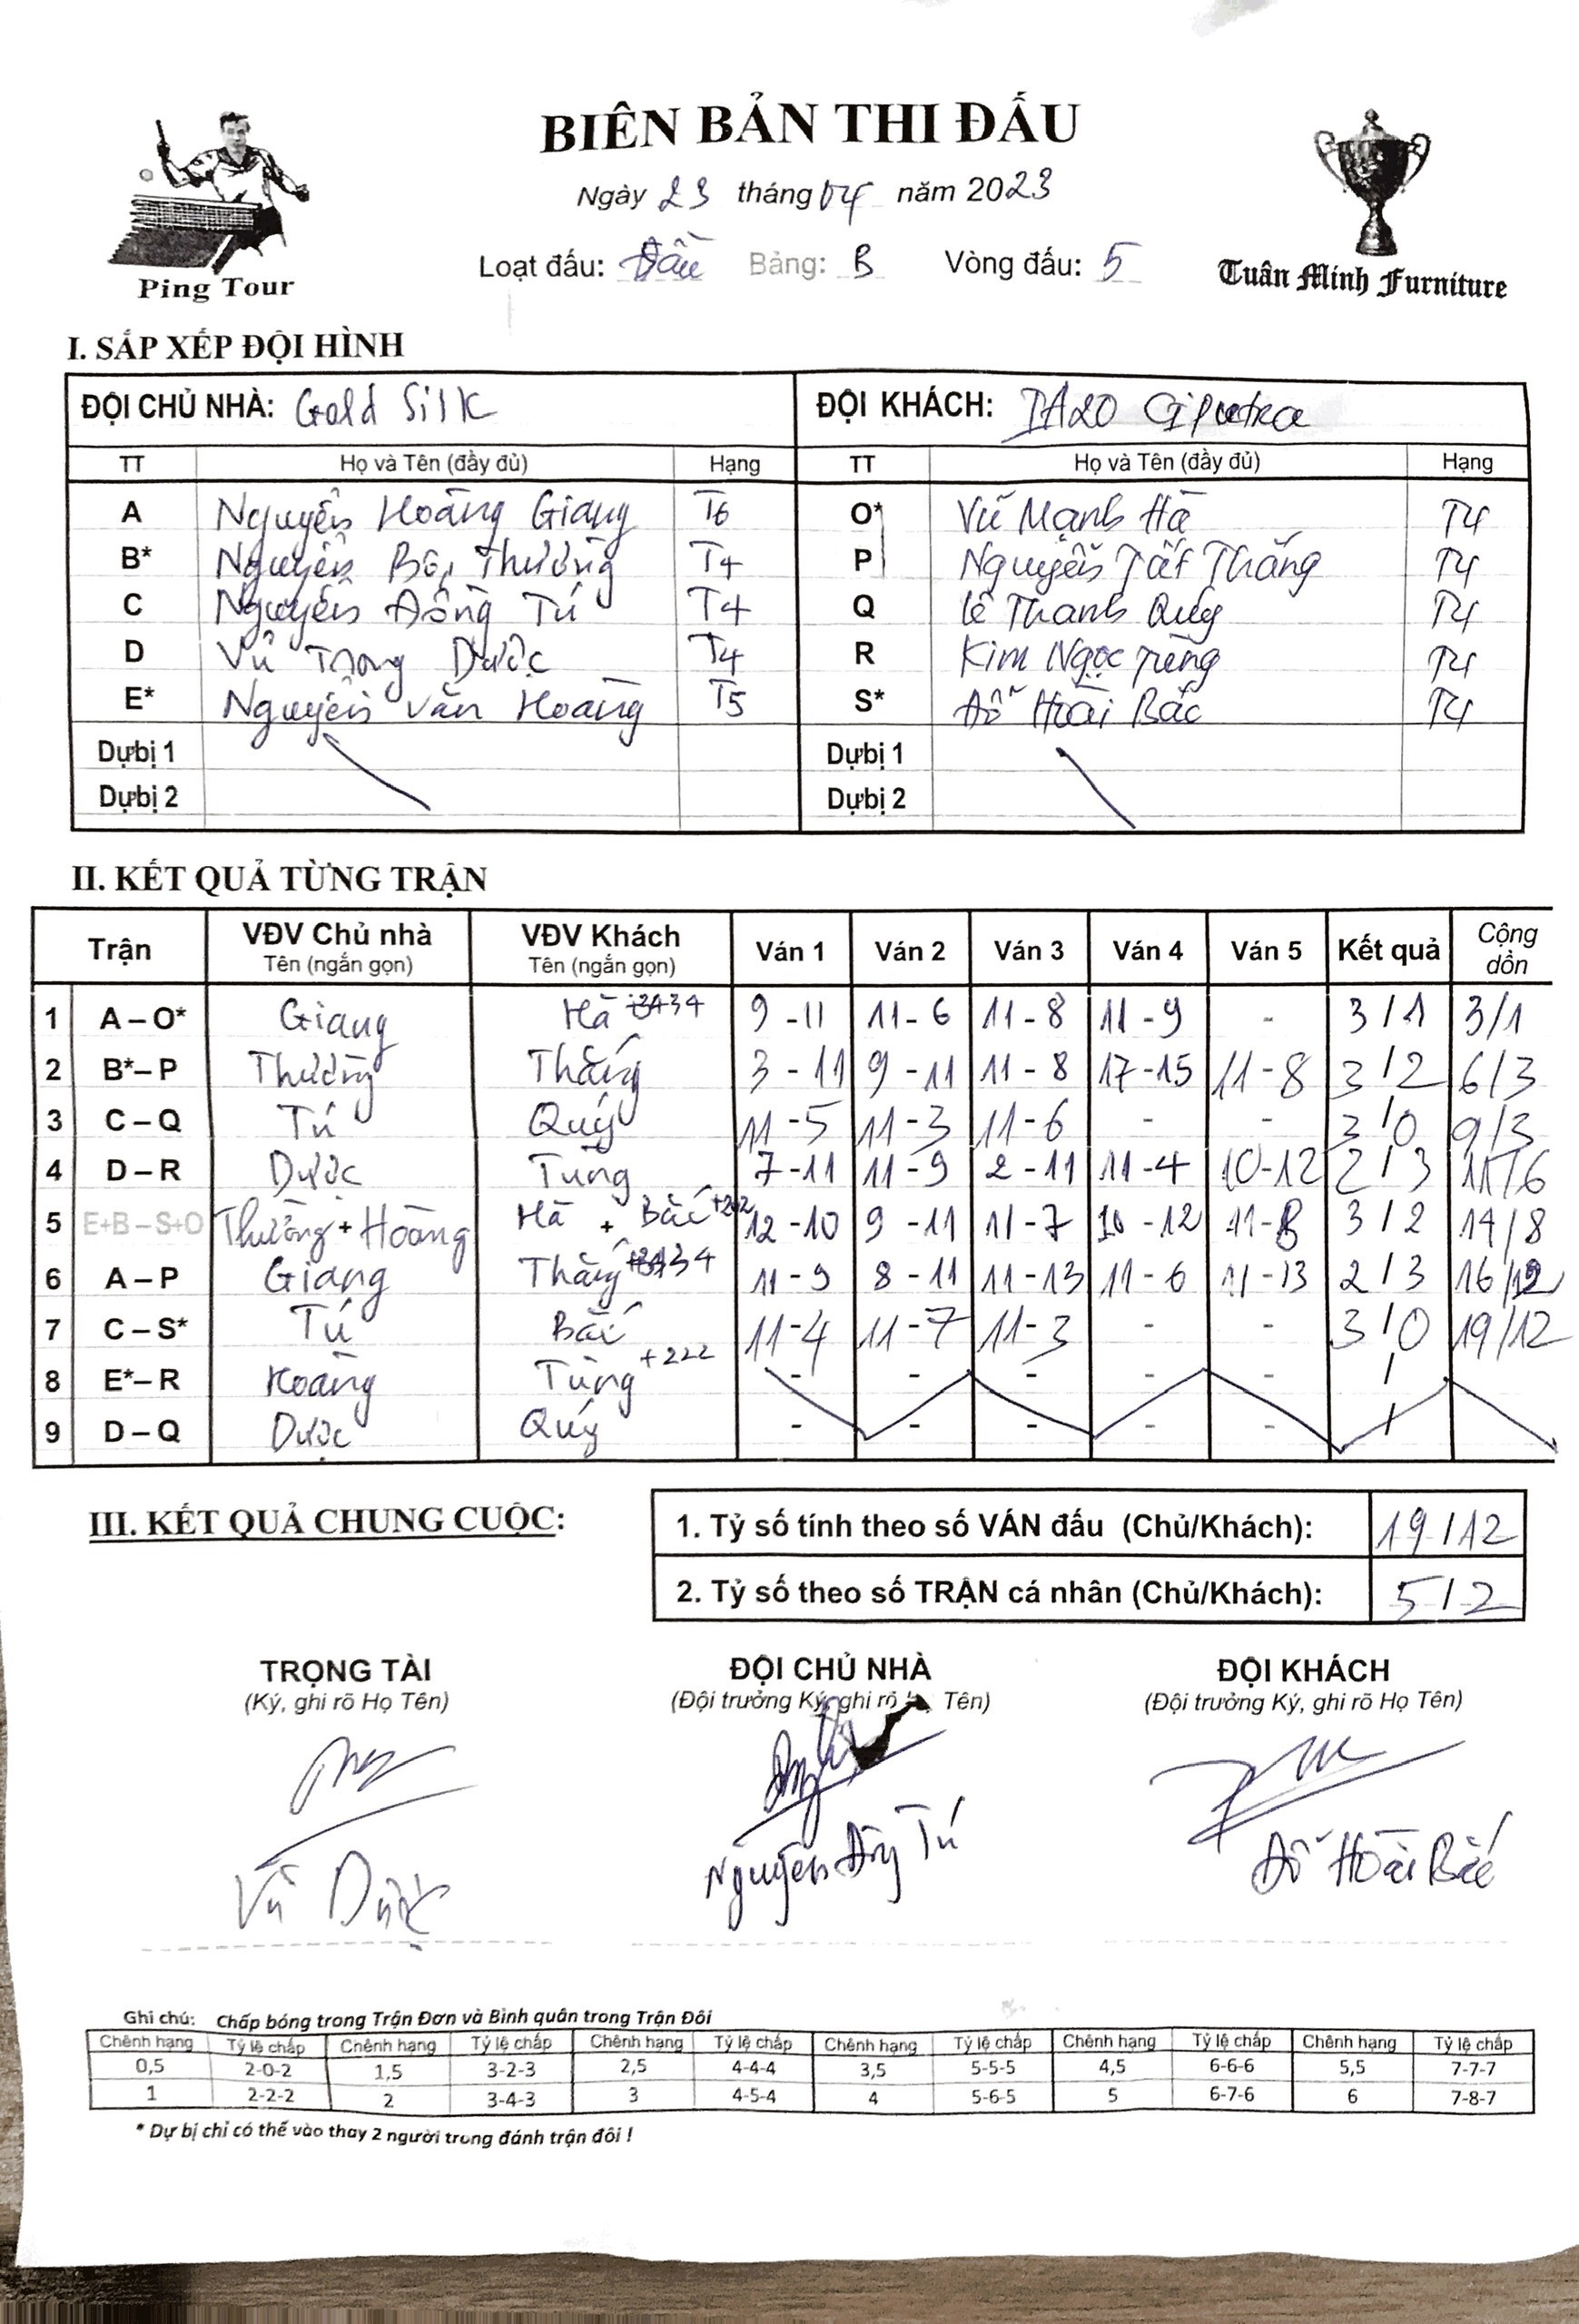 BIÊN BẢN THI ĐẤU
Ngày 23 tháng 04 năm 2023
Loạt đấu: Đầu Bảng: B Vòng đấu: 5
Ping Tour
Tuân Minh Furniture
I. SẮP XẾP ĐỘI HÌNH
ĐỘI CHỦ NHÀ: Gold Silk ĐỘI KHÁCH: IA20 Ciputra
TT Họ và Tên (đầy đủ) Hạng TT Họ và Tên (đầy đủ) Hạng
A Nguyễn Hoàng Giang T6 O* Vũ Mạnh Hà T4
B* Nguyễn Bá Thưởng T4 P Nguyễn Tất Thắng T4
C Nguyễn Đồng Tú T4 Q Lê Thanh Quý T4
D Vũ Trọng Dược T4 R Kim Ngọc Tùng T4
E* Nguyễn Văn Hoàng T5 S* Đỗ Hoài Bắc T4
Dự bị 1 Dự bị 1
Dự bị 2 Dự bị 2
II. KẾT QUẢ TỪNG TRẬN
Trận VĐV Chủ nhà Tên (ngắn gọn) VĐV Khách Tên (ngắn gọn) Ván 1 Ván 2 Ván 3 Ván 4 Ván 5 Kết quả Cộng dồn
1 A – O* Giang Hà 34 9 - 11 11 - 6 11 - 8 11 - 9 - 3 / 1 3/1
2 B* – P Thưởng Thắng 3 - 11 9 - 11 11 - 8 17 - 15 11 - 8 3 / 2 6/3
3 C – Q Tú Quý 11 - 5 11 - 3 11 - 6 - - 3 / 0 9/3
4 D – R Dược Tùng 7 - 11 11 - 9 2 - 11 11 - 4 10 - 12 2 / 3 11/6
5 E+B – S+O Thưởng + Hoàng Hà + Bắc +202 12 - 10 9 - 11 11 - 7 10 - 12 11 - 8 3 / 2 14/8
6 A – P Giang Thắng 34 11 - 9 8 - 11 11 - 13 11 - 6 11 - 13 2 / 3 16/12
7 C – S* Tú Bắc 11 - 4 11 - 7 11 - 3 - - 3 / 0 19/12
8 E* – R Hoàng Tùng +222 - - - - - /
9 D – Q Dược Quý - - - - - /
III. KẾT QUẢ CHUNG CUỘC:
1. Tỷ số tính theo số VÁN đấu (Chủ/Khách): 19 / 12
2. Tỷ số theo số TRẬN cá nhân (Chủ/Khách): 5 / 2
TRỌNG TÀI ĐỘI CHỦ NHÀ ĐỘI KHÁCH
(Ký, ghi rõ Họ Tên) (Đội trưởng Ký, ghi rõ Tên) (Đội trưởng Ký, ghi rõ Họ Tên)
Vũ Dược Nguyễn Đồng Tú Đỗ Hoài Bắc
Ghi chú: Chấp bóng trong Trận Đơn và Bình quân trong Trận Đôi
Chênh hạng Tỷ lệ chấp Chênh hạng Tỷ lệ chấp Chênh hạng Tỷ lệ chấp Chênh hạng Tỷ lệ chấp Chênh hạng Tỷ lệ chấp Chênh hạng Tỷ lệ chấp
0,5 2-0-2 1,5 3-2-3 2,5 4-4-4 3,5 5-5-5 4,5 6-6-6 5,5 7-7-7
1 2-2-2 2 3-4-3 3 4-5-4 4 5-6-5 5 6-7-6 6 7-8-7
* Dự bị chỉ có thể vào thay 2 người trong đánh trận đôi !